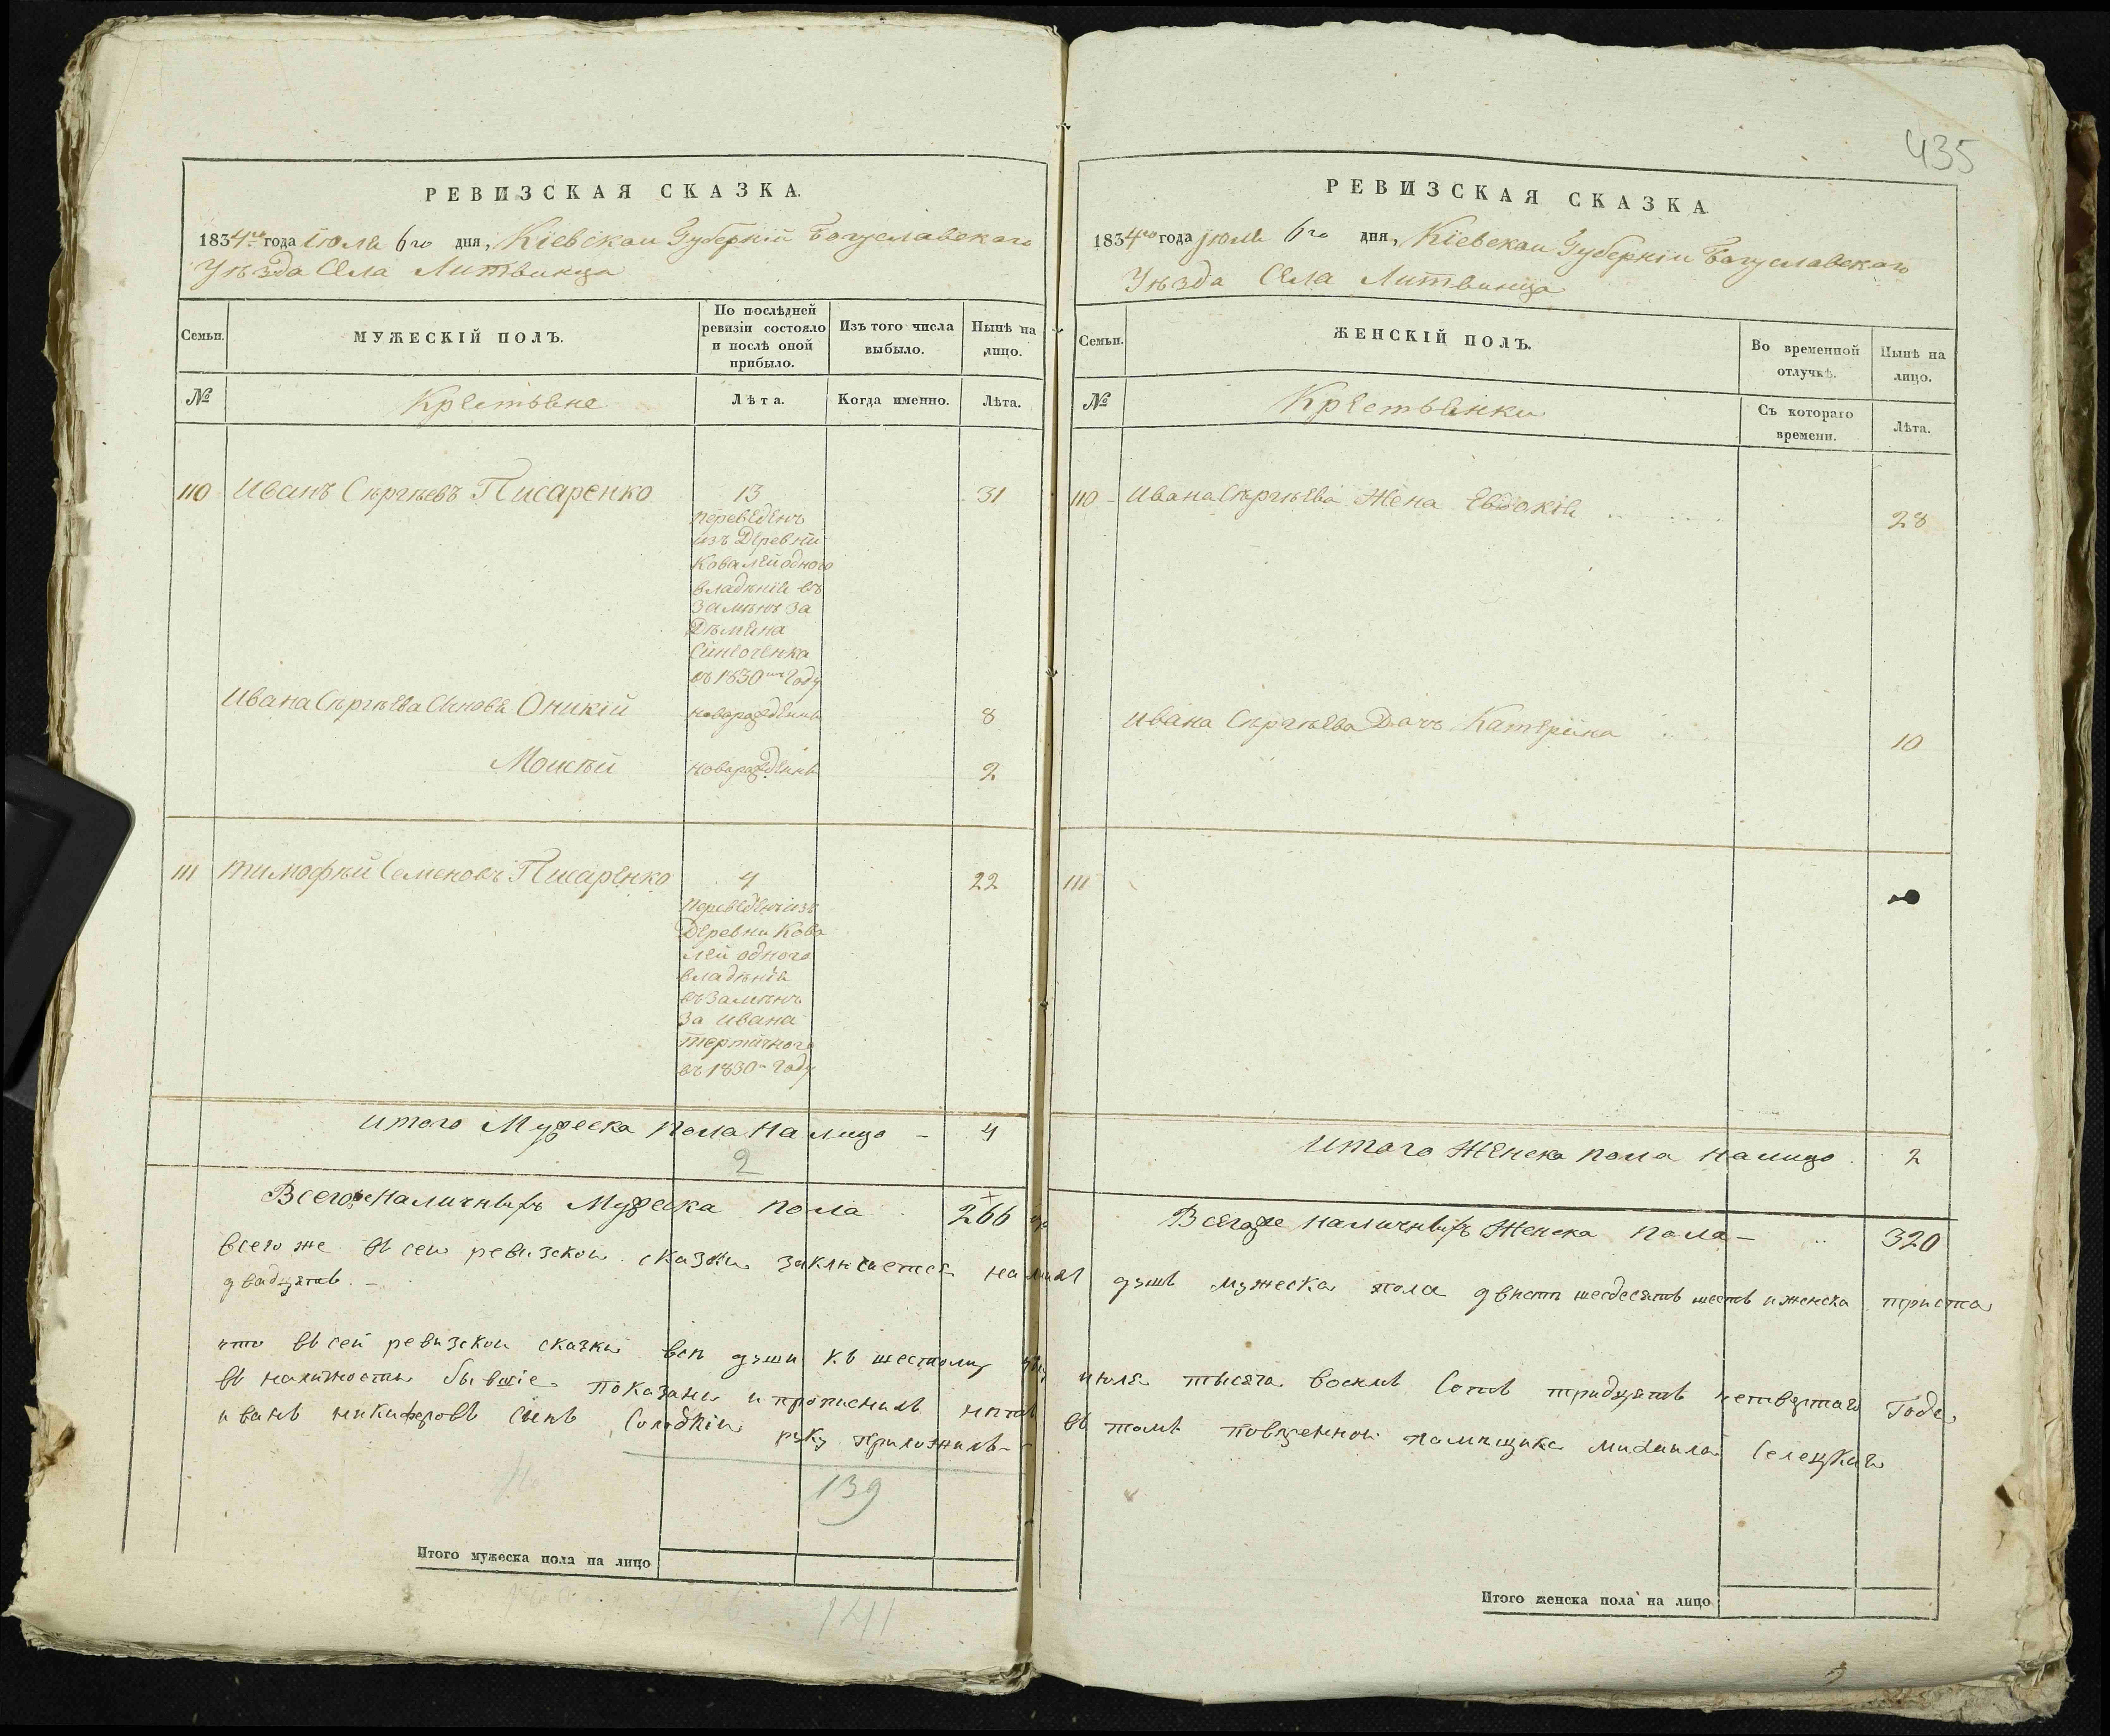 РЕВИЗСКАЯ СКАЗКА.
1834го года Іюля 6го дня, Кіевской Губерніи Богуславскаго
Уѣзда Села Литвинца
Семьи.
МУЖЕСКІЙ ПОЛЪ.
По послѣдней
ревизіи состояло
и послѣ оной
прибыло.
Изъ того числа
выбыло.
Нынѣ на
лицо.
№
Крестьяне
Лѣта.
Когда именно.
Лѣта.
110 Иванъ Сергѣевъ Писаренко 13 31
переведенъ
изъ Деревни
Ковалей одного
владѣнія въ
замѣнъ за
Дѣмяна
въ 1830 Году
Ивана Сергѣева Сыновя Оникій новорожденъ 8
Моисѣй новорожденъ 2
111 Тимофѣй Семеновъ Писаренко 4 22
переведенъ изъ
Деревни Кова
лей одного
владѣнія
въ замѣнъ
за Ивана
въ 1830 Году
Итого Мужеска пола на лицо - 4
2
Всего же наличныхъ Мужеска пола 266
139
Итого мужеска пола на лицо
1411
435
РЕВИЗСКАЯ СКАЗКА
1834го года Іюля 6го дня, Кіевской Губерніи Богуславскаго
Уѣзда Села Литвинца
Семьи.
ЖЕНСКІЙ ПОЛЪ.
Во временной
отлучкѣ.
Нынѣ на
лицо.
№
Крестьянки
Съ котораго
времени.
Лѣта.
110 - Ивана Сергѣева Жена Евдокія 28
Ивана Сергѣева Дочь Катерина 10
111
Итого Женска пола на лицо 2
Всего же наличныхъ Женска пола - 320
всего же въ сей ревизской сказки заключается на лицо душъ мужеска пола двѣсти шесдесятъ шесть и женска триста
двадцять. -
что въ сей ревизской сказки всѣ души къ шестому июля тысяча восемь сотъ тридцять четвертаго Года
въ наличности бывшіе показаны и въ томъ повѣренной помѣщика Михаила Селецкаго
иванъ никифоровъ сынъ руку приложилъ -
Итого женска пола на лицо